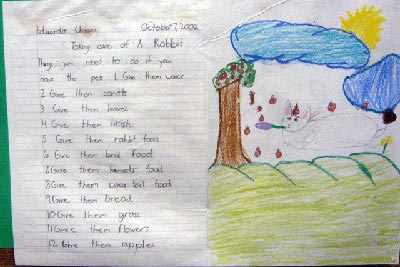 Eduardo October 7, 2002
Taking care of A Rabbit
Thing you need to do if you
have the pet 1 Give them water
2 Give them carrots
3 Give them leaves
4 Give them
5 Give them rabbit food
6 Give them food
7 Give them food
8 Give them food
9 Give them bread
10 Give them grass
11 Give them flowers
12 Give them apples